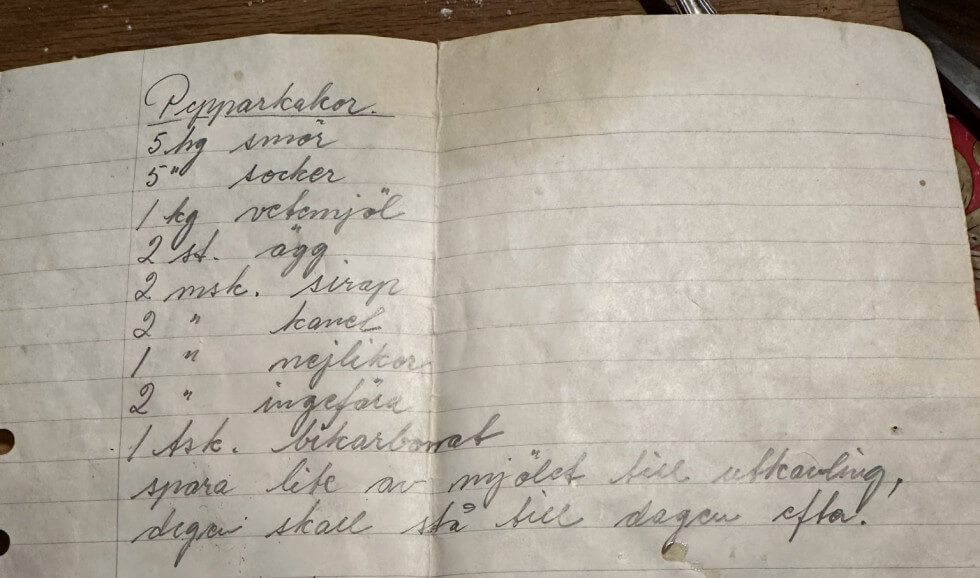 Pepparkakor.
5 hg smör
5 " socker
1 kg vetemjöl
2 st. ägg
2 msk. sirap
2 " kanel
1 " nejlikor
2 " ingefära
1 tsk. bikarbonat
spara lite av mjölet till utkavling,
degen skall stå till dagen efter.